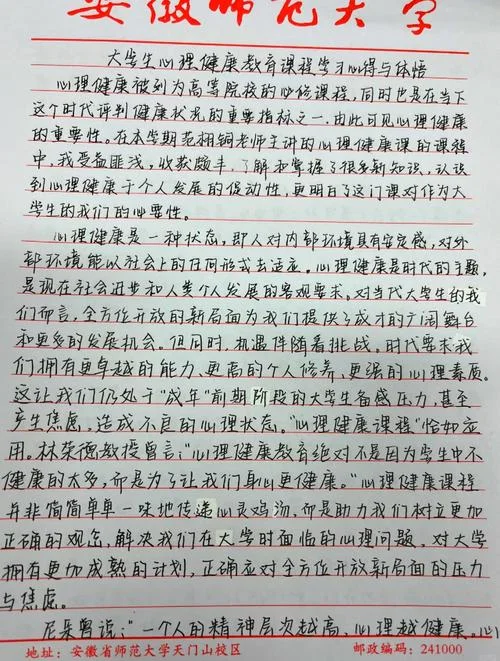 安徽师范大学
大学生心理健康教育课程学习心得与体悟
心理健康被列为高等院校的必修课程，同时也是在当下
这个时代评判健康状况的重要指标之一，由此可见心理健康
的重要性。在本学期范栩铜老师主讲的心理健康课的课程
中，我受益匪浅，收获颇丰，了解和掌握了很多新知识，认识
到心理健康于个人发展的促动性，更明白了这门课对作为大
学生的我们的必要性。
心理健康是一种状态，即人对内部环境具有安定感，对外
部环境能以社会上的任何形式去适应。心理健康是时代的主题，
是现在社会进步和人类个人发展的客观要求。对当代大学生的我
们而言，全方位开放的新局面为我们提供了成才的广阔舞台
和更多的发展机会。但同时，机遇伴随着挑战。时代要求我
们拥有更卓越的能力、更高的个人修养、更强的心理素质。
这让我们仍处于“成年”前期阶段的大学生备感压力，甚至
产生焦虑，造成不良的心理状态。“心理健康课程”恰如应
用。林荣德教授曾言：“心理健康教育绝对不是因为学生中不
健康的太多，而是为了让我们身心更健康。”心理健康课程
并非简简单单一味地传递心灵鸡汤，而是助力我们树立更加
正确的观念，解决我们在大学时面临的心理问题，对大学
拥有更加成熟的计划，正确应对全方位开放新局面的压力
与焦虑。
尼采曾说：“一个人的精神层次越高，心理越健康。心
地址：安徽省师范大学天门山校区 邮政编码：241000